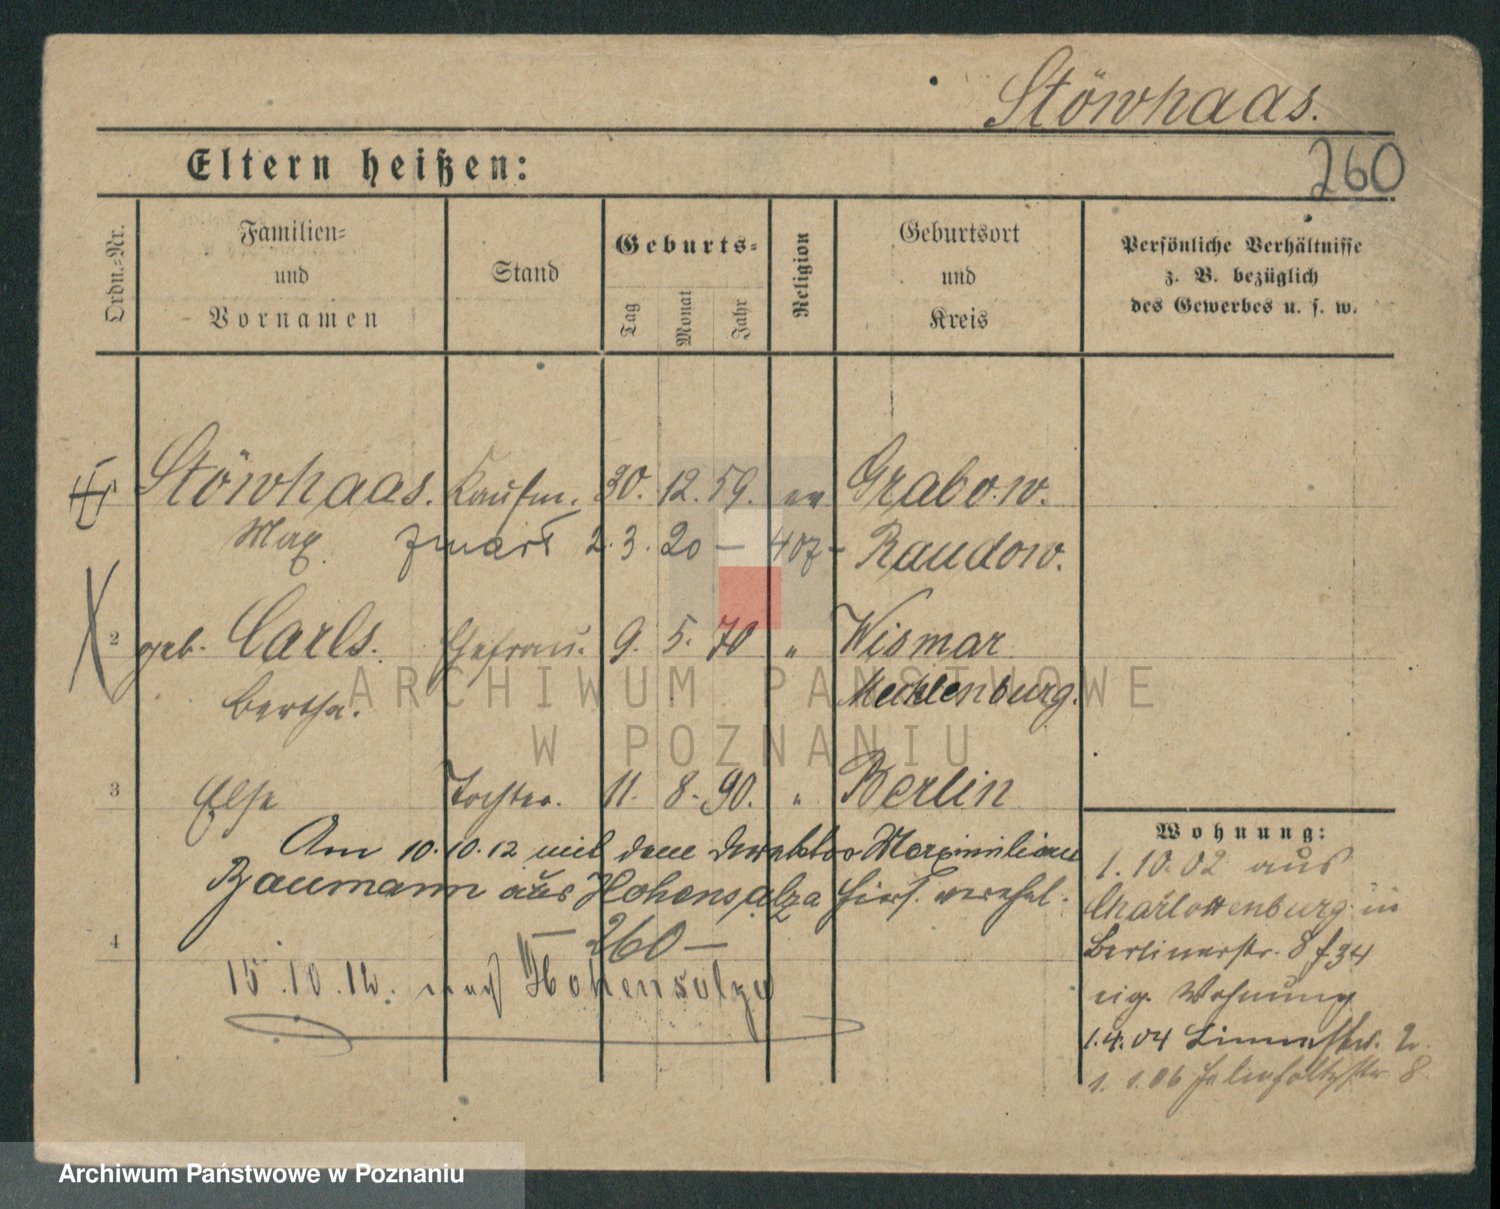 Stöwhaas.
260
Eltern heißen:
Ordn.-Nr.
Familien-
und
Vornamen
Stand
Geburts-
Tag
Monat
Jahr
Religion
Geburtsort
und
Kreis
Persönliche Verhältnisse
z. B. bezüglich
des Gewerbes u. s. w.
1 Stöwhaas. Kaufm. 30. 12. 59. ev Grabow.
Max. 2. 3. 20 — 407 — Randow.
2 geb. Carls. Ehefrau. 9. 5. 70 „ Wismar
Bertha. Mecklenburg.
3 Else Tochter. 11. 8. 90. „ Berlin
Am 10.10.12 mit dem Direktor Maximilian
Baumann aus Hohensalza hier verehel.
— 260 —
4
15.10.12. nach Hohensalza
Wohnung:
1.10.02 aus
Charlottenburg in
Berlinerstr. 8
eig. Wohnung
1.4.04 2
1.1.06 8
ARCHIWUM PAŃSTWOWE
W POZNANIU
Archiwum Państwowe w Poznaniu